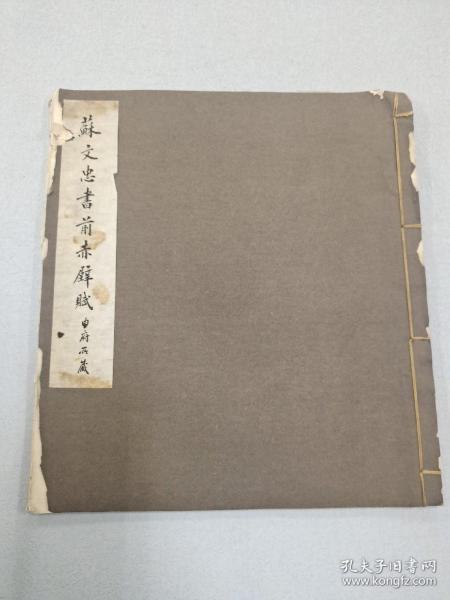 蘇文忠書前赤壁賦
申府所藏
孔夫子旧书网
www.kongfz.com